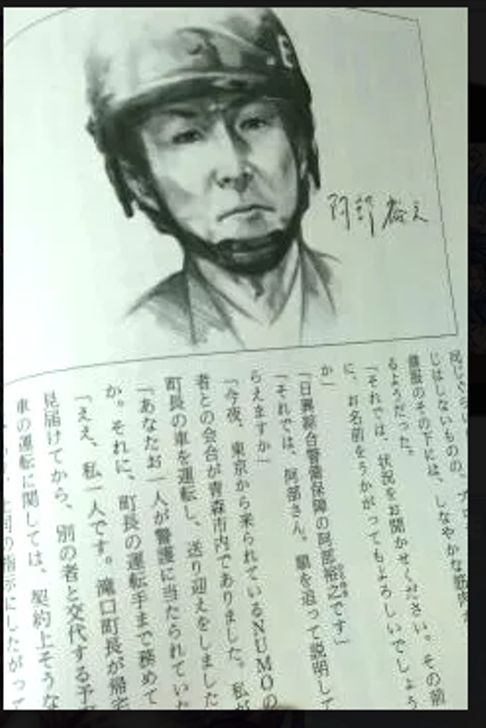 阿部裕之
じはしないものの、プロ
制服のその下には、しなやかな筋肉が
るようだった。
「それでは、状況をお聞かせください。その前
に、お名前をうかがってもよろしいでしょう
か」
「日興綜合警備保障の阿部裕之です」
「それでは、阿部さん。順を追って説明して
らえますか」
「今夜、東京から来られているNUMOの
者との会合が青森市内でありました。私が
町長の車を運転し、送り迎えをしました
「あなたお一人が警護に当たられていた
か。それに、町長の運転手まで務めて
「ええ、私一人です。滝口町長が帰宅
見届けてから、別の者と交代する予
車の運転に関しては、契約上そうな
上司の指示にしたがって